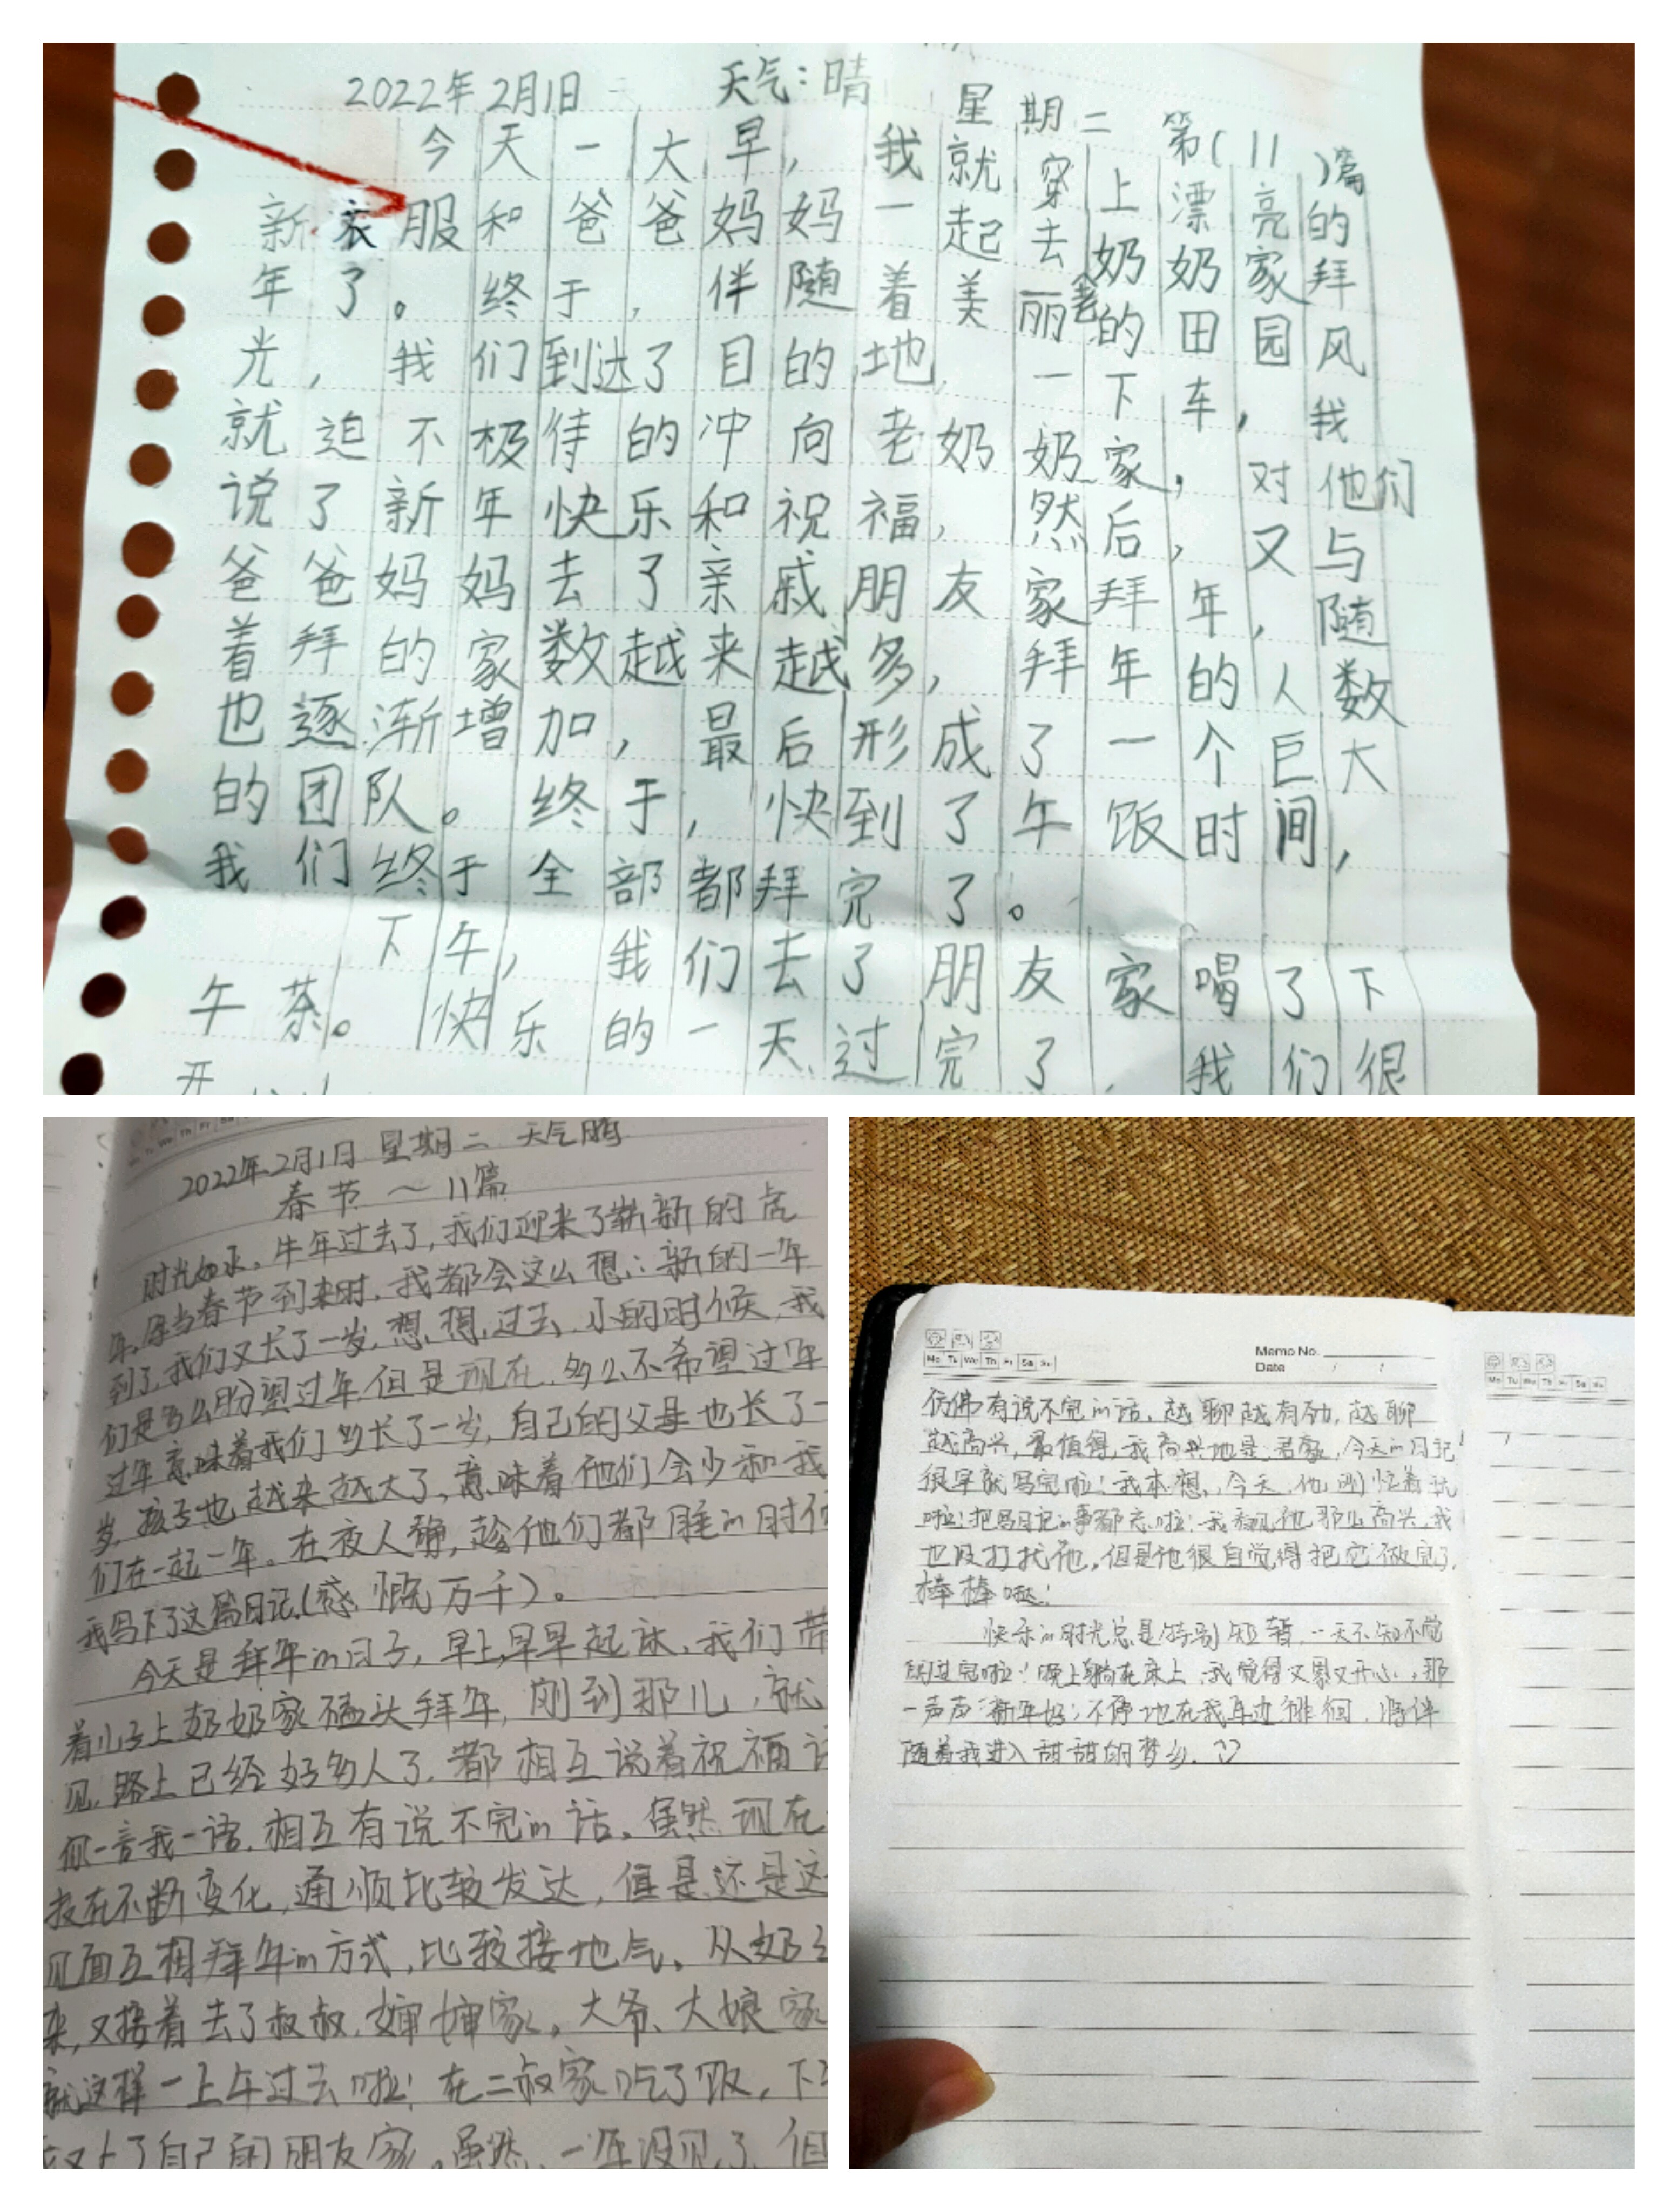 2022年2月1日 天气:晴 星期二 第(11)篇
今天一大早,我就穿上漂亮的
新衣服和爸爸妈妈一起去奶奶家拜
年了。终于,伴随着美丽的田园风
光,我们到达了目的地,一下车,我
就迫不极待的冲向老奶奶家,对他们
说了新年快乐和祝福,然后,又与
爸爸妈妈去了亲戚朋友家拜年,随
着拜的家数越来越多,拜年的人数
也逐渐增加,最后形成了一个巨大
的团队。终于,快到了午饭时间,
我们终于全部都拜完了。
下午,我们去了朋友家喝了下
午茶。快乐的一天过完了,我们很
开
2022年2月1日 星期二 天气晴
春节~11篇
时光如水,牛年过去了,我们迎来了崭新的虎
年,每当春节到来时,我都会这么想:新的一年
到了,我们又长了一岁,想想,过去,小的时候,我
们是多么盼望过年,但是现在,多么不希望过年
过年意味着我们多长了一岁,自己的父母也长了一
岁,孩子也越来越大了,意味着他们会少和我
们在一起一年。在夜人静,趁他们都睡的时候
我写下了这篇日记(感慨万千)。
今天是拜年的日子,早上早早起床,我们带
着小子上奶奶家磕头拜年,刚到那儿,就
见路上已经好多人了,都相互说着祝福话
你一言我一语,相互有说不完的话。虽然现在
技在不断变化,通顺比较发达,但是还是这
见面互相拜年的方式,比较接地气。从奶
来,又接着去了叔叔、婶婶家,大爷、大娘家
就这样一上午过去啦!在二叔家吃了饭,下
又上了自己的朋友家。虽然,一年没见了,但
Memo No.
Date
Mo Tu We Th Fr Sa Su
Mo Tu We Th Fr Sa Su
仿佛有说不完的话,越聊越有劲,越聊
越高兴,最值得我高兴地是:君豪,今天的日记
很早就写完啦!我本想,今天,他刚忙着玩
啦!把写日记的事都忘啦!我看见他那么高兴,我
也没打扰他,但是他很自觉得把它做完了,
棒棒哒!
快乐的时光总是特别短暂,一天不知不觉
的过完啦!晚上躺在床上,我觉得又累又开心,那
一声声"新年好"不停地在我耳边徘徊,将伴
随着我进入甜甜的梦乡。